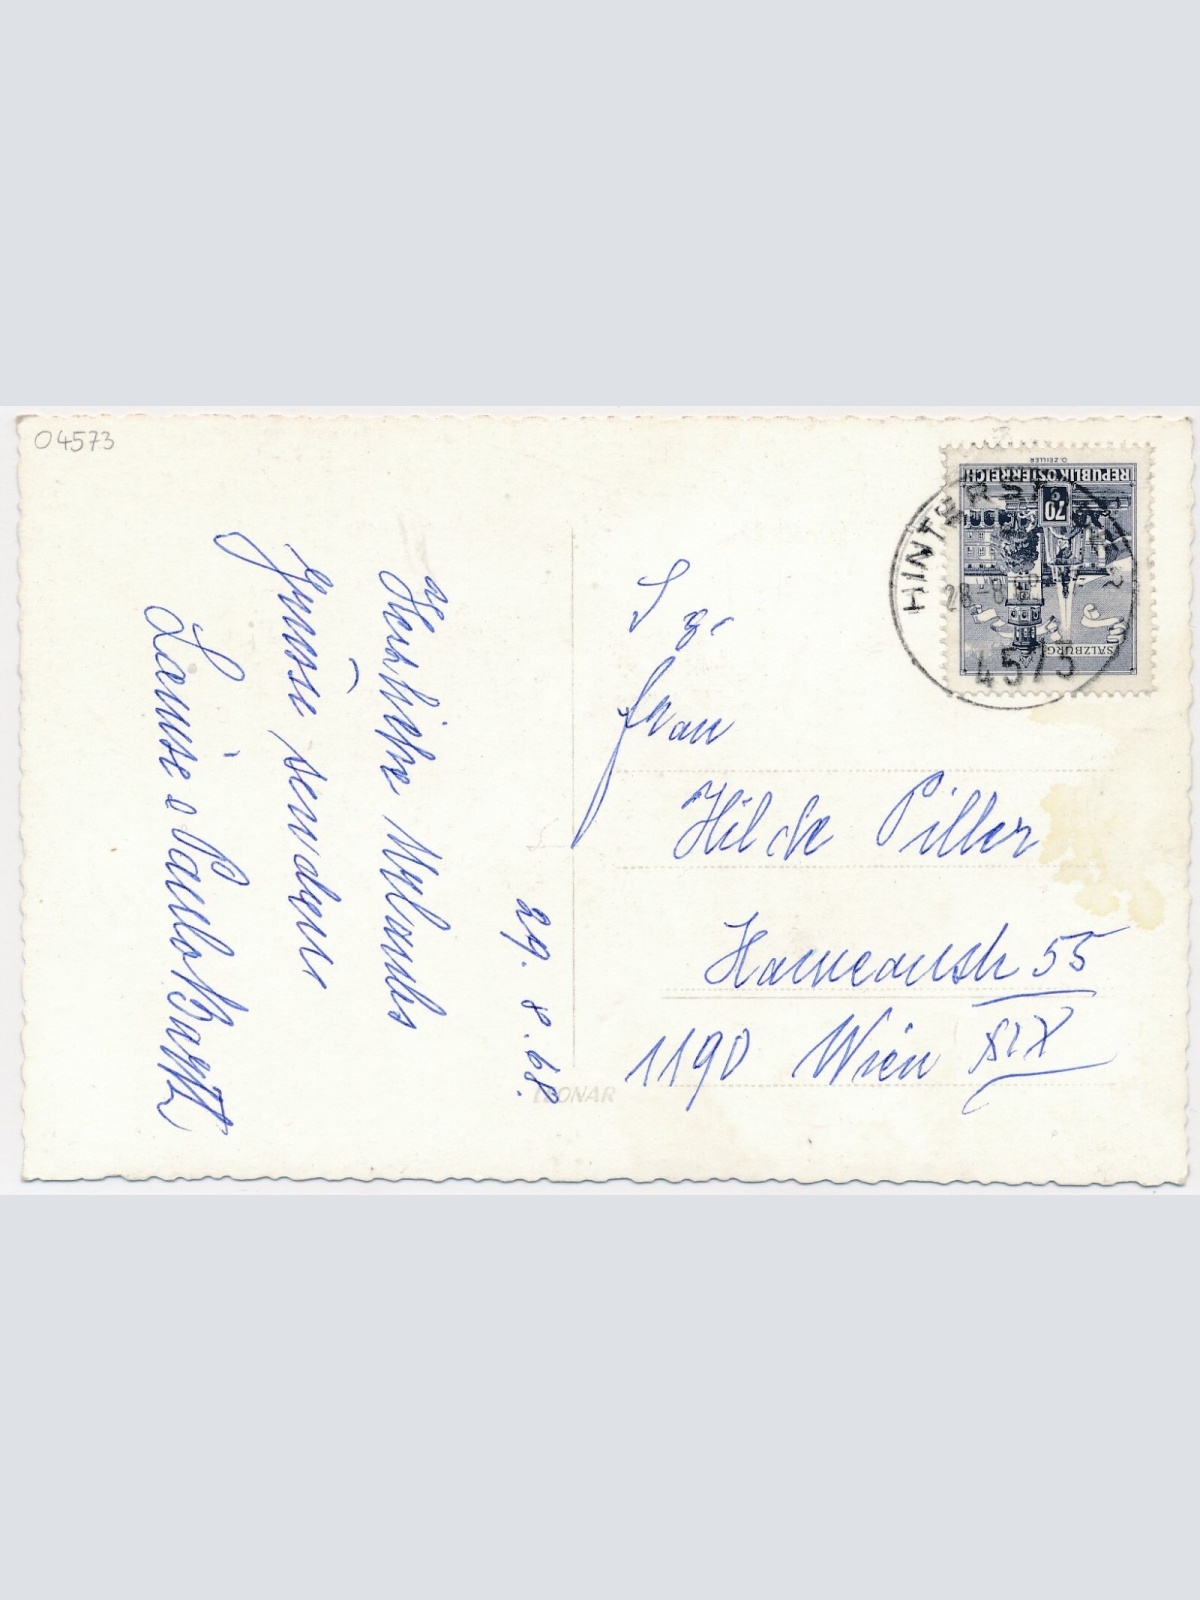 04573
29. 8. 68.
Herzliche Urlaubs
Grüsse senden
Louise u Paula
S. g.
Frau
Hilde Piller
Hameaustr 55
1190 Wien XIX
LEONAR
REPUBLIK ÖSTERREICH
O. ZEILER
70 g
SALZBURG
28.-8.
4573